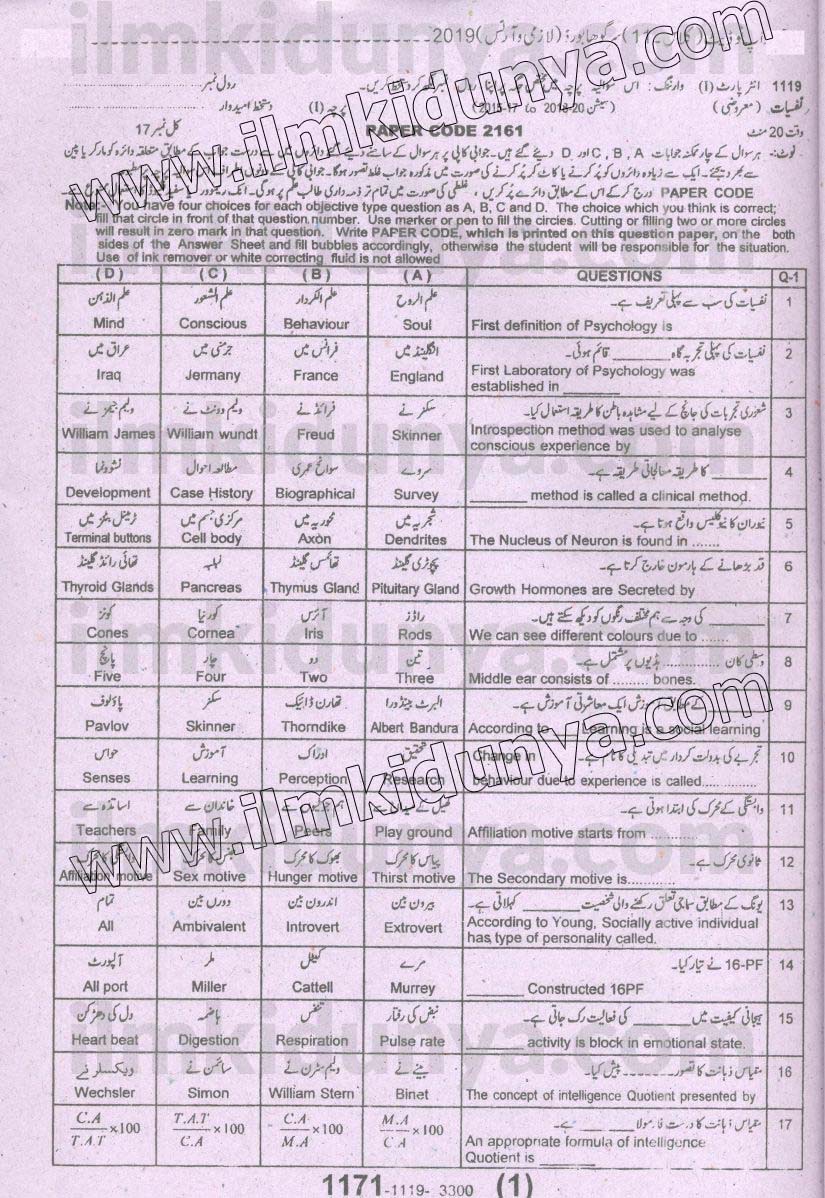 2019(لازمی و آرٹس)
1119 انٹر پارٹ (I) وارننگ: اس سوالیہ پرچہ رول نمبر
نفسیات (معروضی) (سیشن 2015-17 to 2018-20) پرچہ (I) دستخط امیدوار
وقت 20 منٹ PAPER CODE 2161 کل نمبر 17
نوٹ:- ہر سوال کے چار ممکنہ جوابات C, B, A اور D دیئے گئے ہیں۔ جوابی کاپی پر ہر سوال کے سامنے دیئے گئے دائروں میں سے درست جواب کے مطابق متعلقہ دائرہ کو مارکر یا پین
سے بھر دیجئے۔ ایک سے زیادہ دائروں کو پُر کرنے یا کاٹ کر پُر کرنے کی صورت میں مذکورہ جواب غلط تصور ہوگا۔
PAPER CODE درج کر کے اس کے مطابق دائرے پُر کریں، غلطی کی صورت میں تمام تر ذمہ داری طالب علم پر ہوگی۔
Note:- You have four choices for each objective type question as A, B, C and D. The choice which you think is correct;
fill that circle in front of that question number. Use marker or pen to fill the circles. Cutting or filling two or more circles
will result in zero mark in that question. Write PAPER CODE, which is printed on this question paper, on the both
sides of the Answer Sheet and fill bubbles accordingly, otherwise the student will be responsible for the situation.
Use of ink remover or white correcting fluid is not allowed
(D) (C) (B) (A) QUESTIONS Q-1
علم الذہن علم الشعور علم الکردار علم الروح نفسیات کی سب سے پہلی تعریف ہے۔ 1
Mind Conscious Behaviour Soul First definition of Psychology is
عراق میں جرمنی میں فرانس میں انگلینڈ میں نفسیات کی پہلی تجربہ گاہ ______ قائم ہوئی۔ 2
Iraq Jermany France England First Laboratory of Psychology was
established in ______
ولیم جیمز نے ولیم وونٹ نے فرائڈ نے سکنر نے شعوری تجربات کی جانچ کے لیے مشاہدہ باطن کا طریقہ استعمال کیا۔ 3
William James William wundt Freud Skinner Introspection method was used to analyse
conscious experience by
نشوونما مطالعہ احوال سوانح عمری سروے ______ کا طریقہ معالجاتی طریقہ ہے۔ 4
Development Case History Biographical Survey ______ method is called a clinical method.
ٹرمینل بٹنز میں مرکزی جسم میں محوریہ میں شجریہ میں نیوران کا نیوکلیس واقع ہوتا ہے۔ 5
Terminal buttons Cell body Axon Dendrites The Nucleus of Neuron is found in .......
تھائی رائڈ گلینڈ لبلبہ تھائمس گلینڈ پچوٹری گلینڈ قد بڑھانے کے ہارمون خارج کرتا ہے۔ 6
Thyroid Glands Pancreas Thymus Gland Pituitary Gland Growth Hormones are Secreted by
کونز کورنیا آئرس راڈز ______ کی وجہ سے ہم مختلف رنگوں کو دیکھ سکتے ہیں۔ 7
Cones Cornea Iris Rods We can see different colours due to .......
پانچ چار دو تین وسطی کان ............ ہڈیوں پر مشتمل ہے۔ 8
Five Four Two Three Middle ear consists of ......... bones.
پاؤلوف سکنر تھارن ڈائیک البرٹ بینڈورا کے مطابق آموزش ایک معاشرتی آموزش ہے۔ 9
Pavlov Skinner Thorndike Albert Bandura According to Learning is a social learning
حواس آموزش ادراک تحقیق تجربے کی بدولت کردار میں تبدیلی کا نام ہے۔ Change in 10
Senses Learning Perception Research behaviour due to experience is called..............
اساتذہ سے خاندان سے وابستگی کے محرک کی ابتدا ہوتی ہے۔ 11
Teachers Family Peers Play ground Affiliation motive starts from ...........
بھوک کا محرک پیاس کا محرک ثانوی محرک ہے۔ 12
Affiliation motive Sex motive Hunger motive Thirst motive The Secondary motive is............
تمام دوروں بین اندرون بین بیرون بین یونگ کے مطابق سماجی تعلق رکھنے والی شخصیت ______ کہلاتی ہے۔ 13
All Ambivalent Introvert Extrovert According to Young, Socially active individual
has type of personality called.
آلپورٹ ملر کیٹل مرے 16-PF نے تیار کیا۔ 14
All port Miller Cattell Murrey ______ Constructed 16PF
دل کی دھڑکن ہاضمہ تنفس نبض کی رفتار ہیجانی کیفیت میں ______ کی فعالیت رک جاتی ہے۔ 15
Heart beat Digestion Respiration Pulse rate ______ activity is block in emotional state.
ویکسلر نے سائمن نے ولیم سٹرن نے بینے نے مقیاس ذہانت کا تصور ------ پیش کیا۔ 16
Wechsler Simon William Stern Binet The concept of intelligence Quotient presented by
C.A/T.A.T ×100 T.A.T/C.A ×100 C.A/M.A ×100 M.A/C.A ×100 مقیاس ذہانت کا درست فارمولا ______ ہے۔ 17
An appropriate formula of intelligence
Quotient is ______
1171-1119- 3300 (1)
www.ilmkidunya.com
www.ilmkidunya.com
ilmkidunya.com
ilmkidunya.com
ilmkidunya.com
ilmkidunya.com
ilmkidunya.com